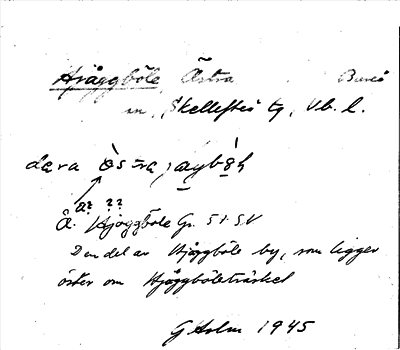 Hjåggböle Östra Bureå
sn, Skellefteå tg, Vb. l.
Å. Hjåggböle Gr. 51:5.V
Den del av Hjåggböle by, som ligger
öster om Hjåggböleträsket
G Holm 1945